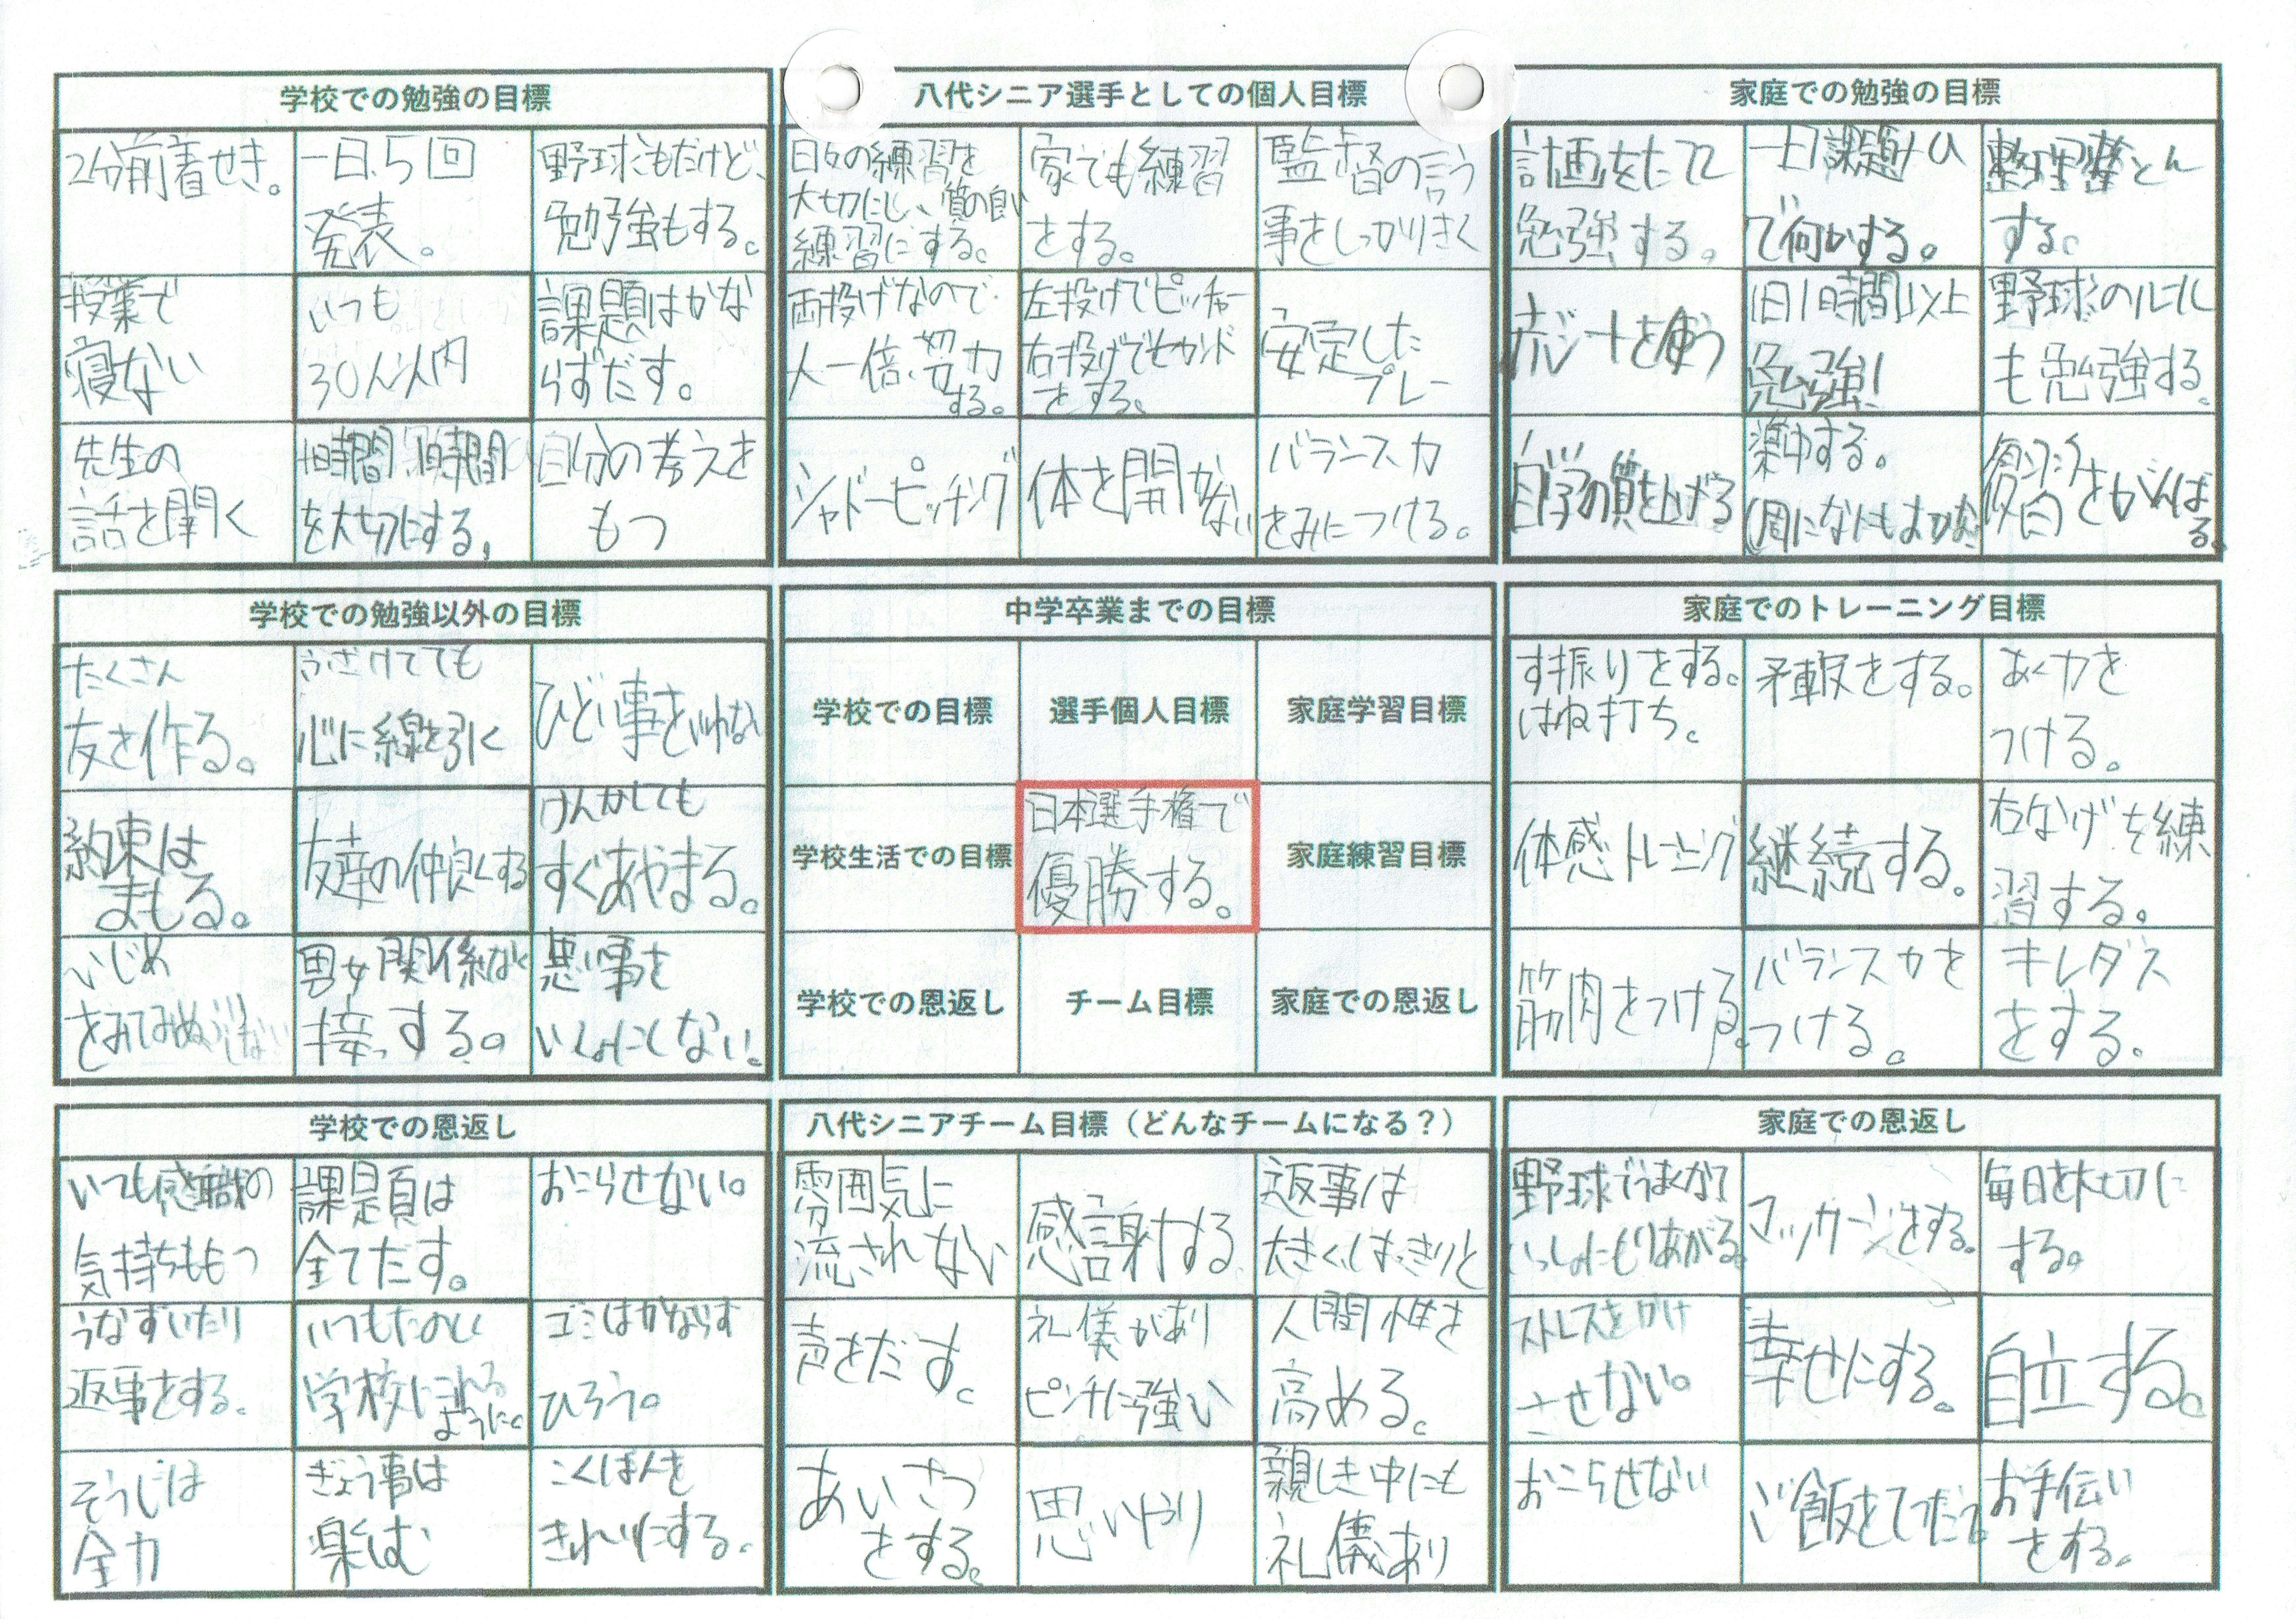 学校での勉強の目標
2分前着せき。
一日、5回
発表。
野球もだけど、
勉強もする。
授業で
寝ない
いつも
30人以内
課題はかな
らずだす。
先生の
話を聞く
1時間1時間
を大切にする。
自分の考えを
もつ
八代シニア選手としての個人目標
日々の練習を
大切にし、質の良い
練習にする。
家でも練習
をする。
監督の言う
事をしっかりきく
両投げなので
人一倍、努力
する。
左投げでピッチャー
右投げでセカンド
をする。
安定した
プレー
シャドーピッチング
体を開かない
バランス力
をみにつける。
家庭での勉強の目標
計画をたてて
勉強する。
一日課題
で何かする。
整理整とん
する。
赤シートを使う
1日1時間以上
勉強!
野球のルール
も勉強する。
自学の質を上げる
集中する。
(周になにもおかない
をがんばる。
学校での勉強以外の目標
たくさん
友を作る。
ふざけてても
心に線を引く
ひどい事をいわない
約束は
まもる。
友達の仲良くする
けんかしても
すぐあやまる。
いじめ
をみてみぬふりしない
男女関係なく
接っする。
悪い事を
いっしょにしない。
中学卒業までの目標
学校での目標
選手個人目標
家庭学習目標
学校生活での目標
日本選手権で
優勝する。
家庭練習目標
学校での恩返し
チーム目標
家庭での恩返し
家庭でのトレーニング目標
す振りをする。
はね打ち。
をする。
あく力を
つける。
体感トレーニング
継続する。
右なげを練
習する。
筋肉をつける。
バランス力を
つける。
キレダス
をする。
学校での恩返し
いつも感職の
気持ちももつ
課題は
全てだす。
おこらせない。
うなずいたり
返事をする。
いつもたのしく
学校にこれる
ように。
ゴミはかならず
ひろう。
そうじは
全力
ぎょう事は
楽しむ
こくばんを
きれいにする。
八代シニアチーム目標(どんなチームになる?)
雰囲気に
流されない
感謝する
返事は
大きくはっきりと
声をだす。
礼儀があり
ピンチに強い
人間性を
高める。
あいさつ
をする。
思いやり
親しき中にも
礼儀あり
家庭での恩返し
野球でうまくなって
いっしょにもりあがる。
マッサージをする。
毎日を大切に
する。
ストレスをかけ
させない。
幸せにする。
自立する。
おこらせない
ご飯をてつだう
お手伝い
をする。